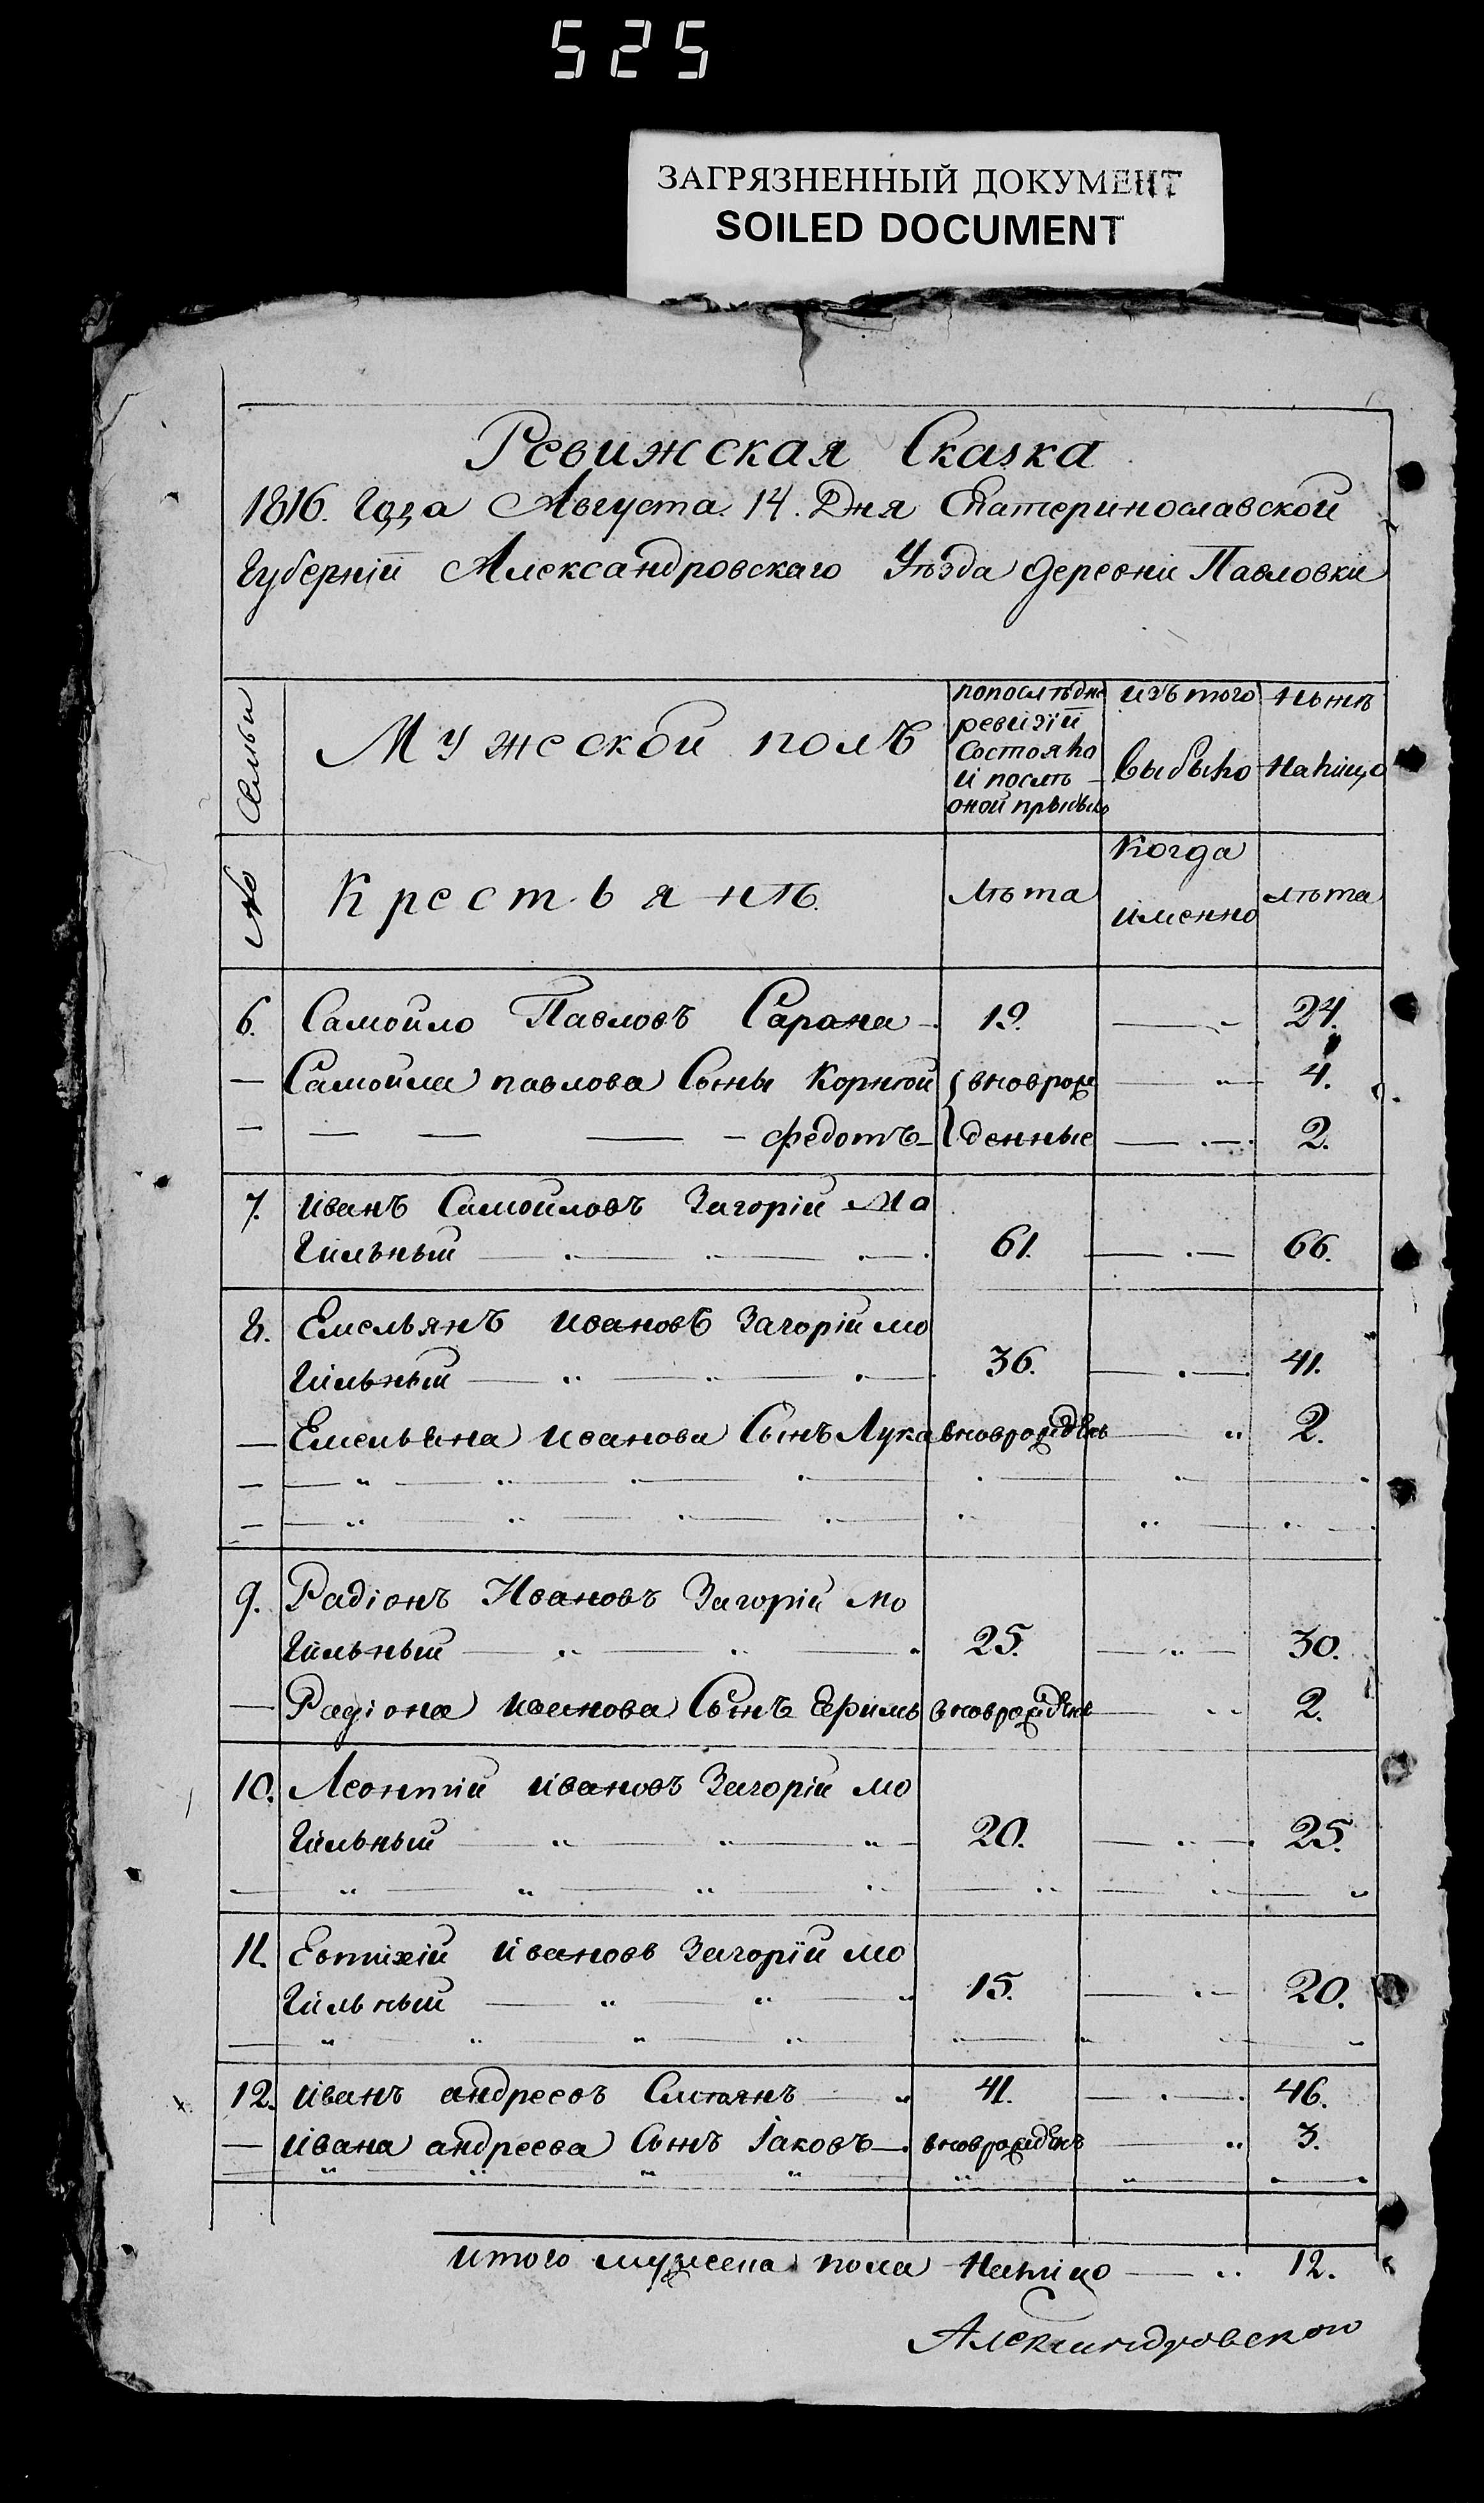 525
ЗАГРЯЗНЕННЫЙ ДОКУМЕНТ
SOILED DOCUMENT
Ревижская Сказка
1816. Года Августа. 14. Дня Екатеринославской
Губерніи Александровскаго Уѣзда деревни Павловки
№ Семьи
Мужеской полъ
попослѣдне
ревизіи
состояло
и послѣ
оной прибыло
изъ того
выбыло
нынѣ
налицо
Крестьянѣ
лѣта
когда
именно
лѣта
6. Самойло Павловъ Сарана 19. 24.
Самойла павлова Сыны Корнѣй вноврож 4.
федотъ денные 2.
7. иванъ Самойловъ Загорій Мо
гильный 61. 66.
8. Емельянъ ивановъ Загорій мо
гильный 36. 41.
Емельяна иванова Сынъ Лука вноврожденъ 2.
9. Радіонъ Ивановъ Загорій мо
гильный 25. 30.
Радіона иванова Сынъ вноврожденъ 2.
10. Леонтій ивановъ Загорій мо
гильный 20. 25.
11. Евтихій ивановъ Загорій мо
гильный 15. 20.
12. иванъ андреевъ 41. 46.
ивана андреева Сынъ Іаковъ вноврожденъ 3.
итого мужеска пола налицо 12.
Александровской